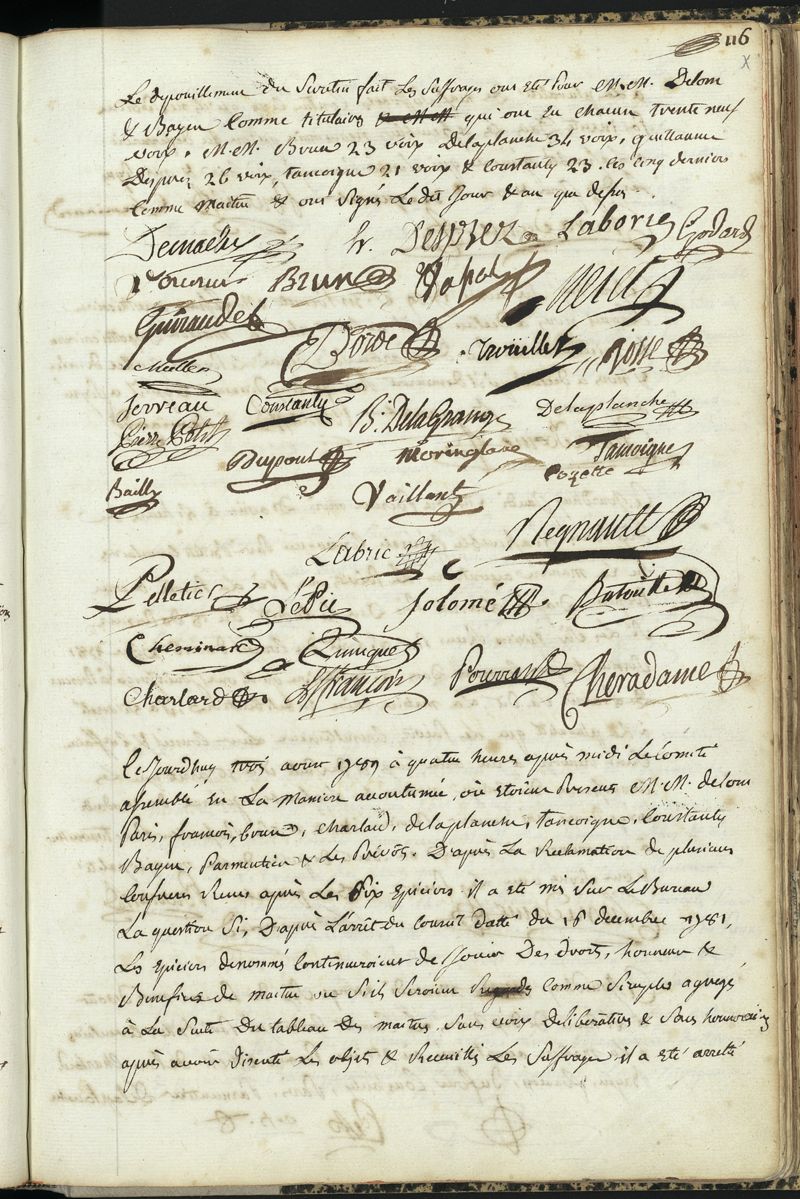 116
x
Le depouillement du Scrutin fait Les Suffrages ont eté Pour M.M. Delom
& Bayen Comme titulaires qui ont eu chacun trente neuf
voix. M.M. Brun 23 voix Delaplanche 34 voix, Guillaume
Desprez 26 voix, Tancoigne 21 voix & Constanty 23. les cinq derniers
Comme & ont Signés Le dit Jour & an que dessus
Demachy h. Desprez Laborie Godard
Brun
Guiraudet
Borde Trouillet Josse
Muller
Serreau Constanty B. DelaGrange Delaplanche
Pierre Dupont Moringlane Tancoigne
Bailly Vaillant Cozette
Labric Regnault
Pelletier Lépie Solomé
Cheminard Quinquet
Charlard françois Cheradame
Ce Jourdhuy trois aout 1789 à quatre heures après midi Le Comité
assemblé en La maniere accoutumée, où etoient Presens M.M. delom
Paris, francois, brun, Charlard, delaplanche, Tancoigne, Constanty
Bayen, Parmentier & Les Prévôts. D'après La Reclamation de plusieurs
Confreres Reçus après Les Dix Epiciers il a eté mis Sur Le Bureau
La question Si, D'après L'arrêt du Conseil datté du 16 decembre 1781,
Les Epiciers denommés Continueroient de Jouir Des droits, honneur &
Benefices de maitre ou S'ils Seroient Comme Simples agregés
à La Suite Du tableau Des maitres, Sans voix deliberatives & Sans honoraires
après avoir Discuté Les objets & Recueilli Les Suffrages il a eté arretté